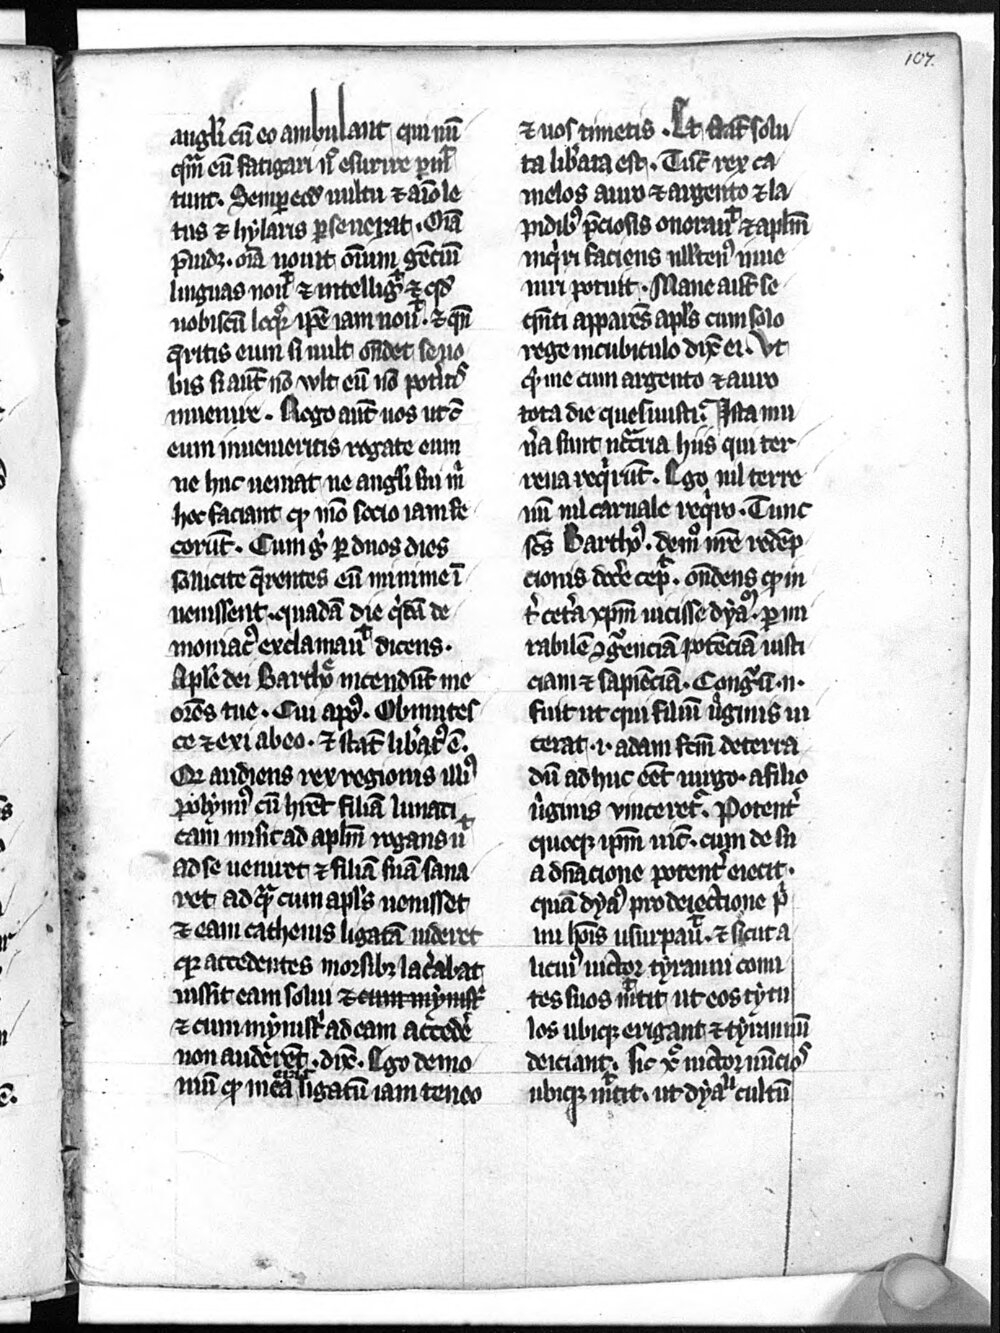 107.
angli cū eo ambulant qui nū
q̄m eū fatigari ul' esurire ꝑmit
tunt. Semꝑ eodē uultu ⁊ aīo le
tus ⁊ hylaris ꝑseuerat. Oīa
p̄uidꝫ. oīa nouit oīum gēciū
linguas nouit ⁊ intelligit ⁊ qd'
uobiscū loquor ip̄e iam nouit. ⁊ qn̄
q̄ritis eum si uult on̄det se uo
bis si aūt nō vlt eū nō pot'itis
inuenire. Rogo aūt uos ut c̄
eum inueneritis rogate eum
ne huc ueniat ne angli sui m̄
hoc faciant qꝫ m̄o socio iam fe
cerūt. Cum g̊ ꝑ duos dies
sollicite q̄rentes eū minime ī
uenissent. quadā die q̇dā de
moniac' exclamauit dicens.
Aplē dei Bartholomee incendūt me
or̄oes tue. Cui apl's. Obmutes
ce ⁊ exi ab eo. ⁊ stat̄ lib'at' ē.
Qꝫ audiens rex regionis illi'
polymi' cū hr̄et filiā lunati
cam misit ad aplm̄ rogans ut
ad se ueniret ⁊ filiā suā sana
ret ad q̄ꝫ cum apl's uenisset
⁊ eam cathenis ligatā uideret
qꝫ accedentes morsibꝫ lac'abat
iussit eam solui ⁊ cum mynist'
⁊ cum mynist' ad eam acced'e
non auderent. dix̄. Ego demo
niū qꝫ in ea erat ligatū iam teneo
⁊ uos timetis. Et stat̄ solu
ta lib'ata est. Tūc rex ca
melos auro ⁊ argento ⁊ la
pidibꝰ p̄ciosis onerauit ⁊ aplm̄
inq'ri faciens null'ten' inue
niri potuit. Mane aūt se
q̄nti apparēs apl's cum solo
rege in cubiculo dix̄ ei. Vt
qͥ me cum argento ⁊ auro
tota die quesiuisti? Ista mu
n'a sunt nc̄cria hiis qui ter
rena req'rūt. Ego nil terre
nū nil carnale req'ro. Tunc
sc̄s Barthol'. de nr̄e redēp
cionis docere cepit. on̄dens qꝫ in
t' cet'a xp̄m uicisse dyabolum. ꝑ mi
rabilē ꝯgruenciā potēciā iusti
ciam ⁊ sapienciā. Congruū .n.
fuit ut qui filiū u'ginis ui
cerat .i. adam fc̄m de terra
dū adhuc eēt uirgo. a filio
u'ginis vinceretur. Potent'
quoqꝫ ip̄m uicit. cum de su
a dn̄acione potent' eiecit.
quā dyab' pro deiectione p'
mi ho̅is usurpauit. ⁊ sicut a
licui' uictor tyranni comi
tes suos mittit ut eos tytu
los ubiqꝫ erigant ⁊ tyrannū
deiciant. sic xp̄c uictor nūcios
ubiqꝫ mittit. ut dyaboli cultū